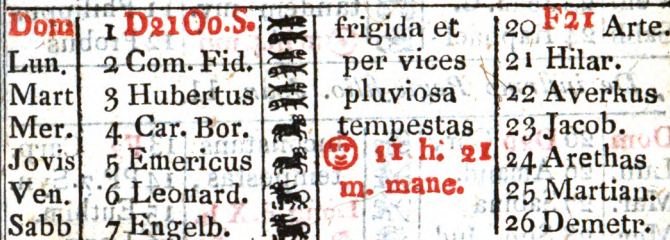 Dom 1 D21Oo.S. frigida et 20 F21 Arte.
Lun. 2 Com. Fid. per vices 21 Hilar.
Mart 3 Hubertus pluviosa 22 Averkus
Mer. 4 Car. Bor. tempestas 23 Jacob.
Jovis 5 Emericus 11 h. 21 24 Arethas
Ven. 6 Leonard. m. mane. 25 Martian.
Sabb 7 Engelb. 26 Demetr.